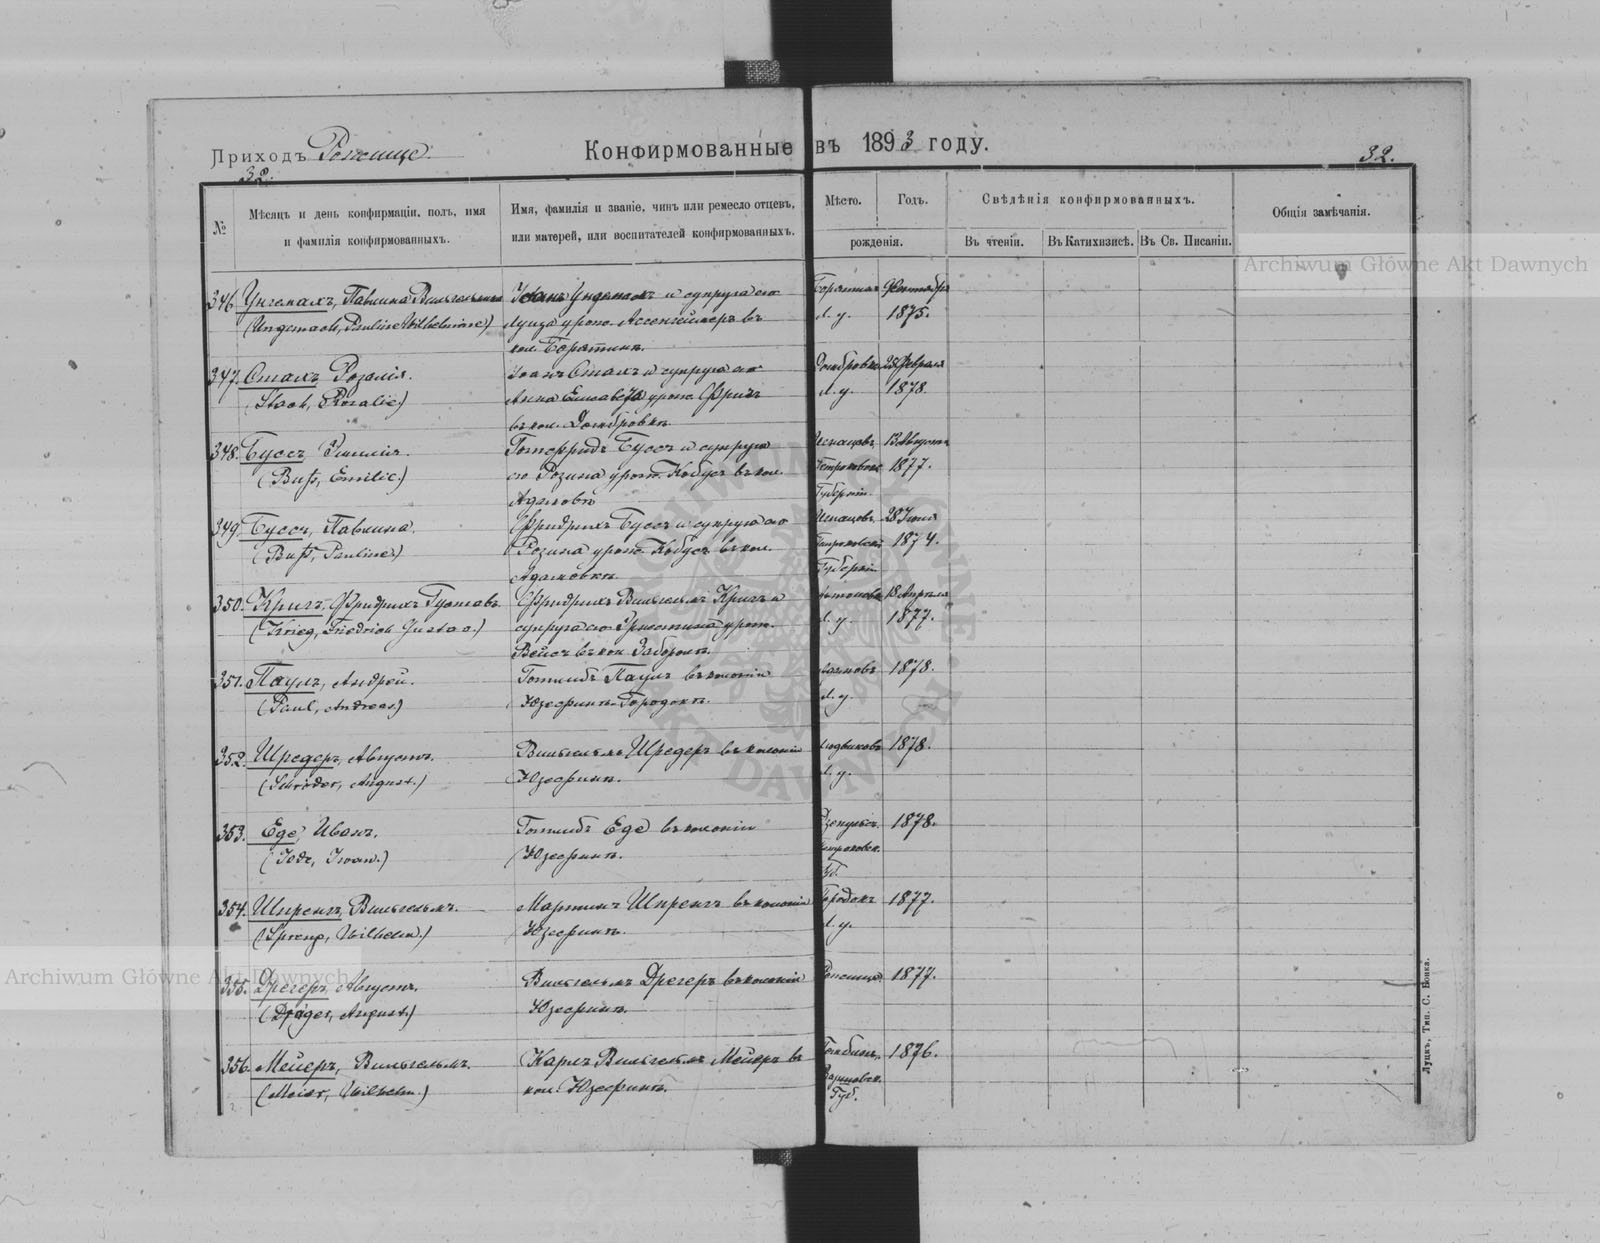 Приходъ Рожище.
Конфирмованные въ 1893 году.
32.
32.
№
Мѣсяцъ и день конфирмаціи, полъ, имя и фамилія конфирмованныхъ.
Имя, фамилія и званіе, чинъ или ремесло отцевъ, или матерей, или воспитателей конфирмованныхъ.
Мѣсто.
Годъ.
рожденія.
Свѣдѣнія конфирмованныхъ.
Въ чтеніи.
Въ Катихизисѣ.
Въ Св. Писаніи.
Общія замѣчанія.
346. Унгемахъ, Павлина Вильгельмина
(Ungemach, Pauline Wilhelmine)
Иванъ Унгемахъ и супруга его
Луиза урож. Ассенгеймеръ въ
кол. Боратинъ.
л. у.
1875.
347. Стахъ Розалія.
(Stach, Rosalie)
Іоанъ Стахъ и супруга его
Анна Елисавета урож. Фрицъ
въ кол. Домбровкѣ
Домбровка
28 Февраля
л. у.
1878.
348. Буссъ Эмилія.
(Buß, Emilie.)
Готфридъ Буссъ и супруга
его Розина урож. Кобусъ въ кол.
Адамовкѣ
Игнацовъ
13 Августа
Петроковской
1877.
Губерніи
349. Буссъ, Павлина.
(Buß, Pauline)
Фридрихъ Буссъ и супруга его
Розина урож. Кобусъ въ кол.
Адамовкѣ.
Игнацовъ.
28 Іюня
Петроковской
1874.
Губерніи
350. Кригъ, Фридрихъ Густавъ.
(Krieg, Friedrich Gustav.)
Фридрихъ Вильгельмъ Кригъ и
супруга его Эрнестина урож.
Вейсъ въ кол. Заборолѣ.
Антоновка
18 Апрѣля
л. у.
1877.
351. Паулъ, Андрей.
(Paul, Andreas.)
Готлибъ Паулъ въ колоніи
Юзефинъ-Городокъ.
1878.
л. у.
352. Шредеръ, Августъ.
(Schröder, August.)
Вильгельмъ Шредеръ въ колоніи
Юзефинѣ.
Людвиковъ
1878.
л. у.
353. Еде, Иванъ.
(Jede, Iwan.)
Готлибъ Еде въ колоніи
Юзефинѣ.
1878.
Петроковск.
Губ.
354. Шпренгъ, Вильгельмъ.
(Spreng, Wilhelm.)
Мартинъ Шпренгъ въ колоніи
Юзефинѣ.
Городокъ
1877.
л. у.
355. Дрегеръ, Августъ.
(Dräger, August.)
Вильгельмъ Дрегеръ въ колоніи
Юзефинѣ.
1877.
356. Мейеръ, Вильгельмъ.
(Meier, Wilhelm.)
Карлъ Вильгельмъ Мейеръ въ
кол. Юзефинѣ.
Гомбинъ.
1876.
Варшавск.
Губ.
Луцкъ, Тип. С. Бонка.
Archiwum Główne Akt Dawnych
Archiwum Główne Akt Dawnych
ARCHIWUM GŁÓWNE AKT DAWNYCH